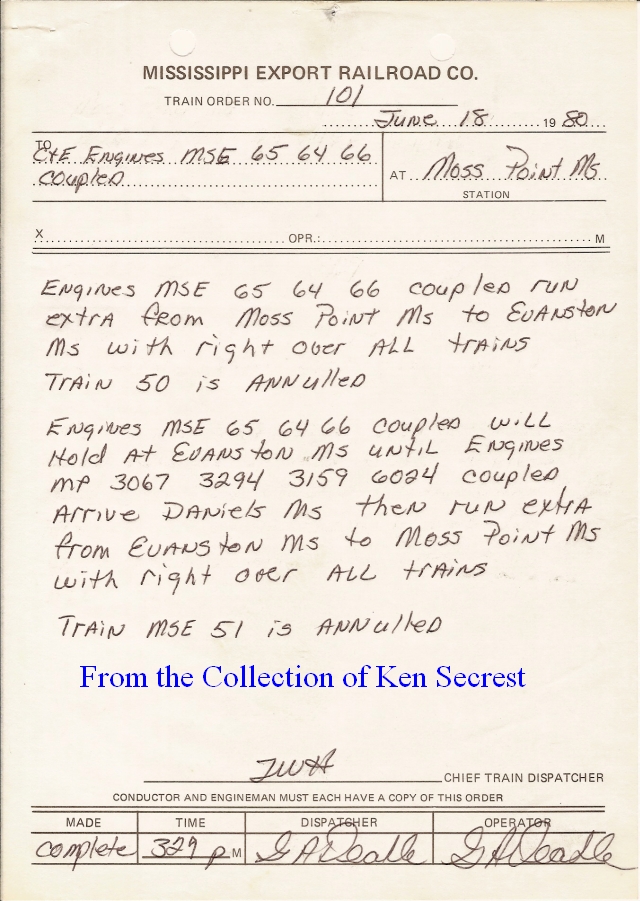 MISSISSIPPI EXPORT RAILROAD CO.
TRAIN ORDER NO. 101
June 18 1980
TO C&E Engines MSE 65 64 66
coupled
AT Moss Point Ms
STATION
X OPR.: M
Engines MSE 65 64 66 coupled run
extra from Moss Point Ms to Evanston
Ms with right over ALL trains
Train 50 is Annulled
Engines MSE 65 64 66 coupled will
Hold at Evanston Ms until Engines
MP 3067 3294 3159 6024 coupled
Arrive Daniels Ms then run extra
from Evanston Ms to Moss Point Ms
with right over ALL trains
Train MSE 51 is Annulled
From the Collection of Ken Secrest
JWH CHIEF TRAIN DISPATCHER
CONDUCTOR AND ENGINEMAN MUST EACH HAVE A COPY OF THIS ORDER
MADE TIME DISPATCHER OPERATOR
complete 329 p M G A Deadle G A Deadle